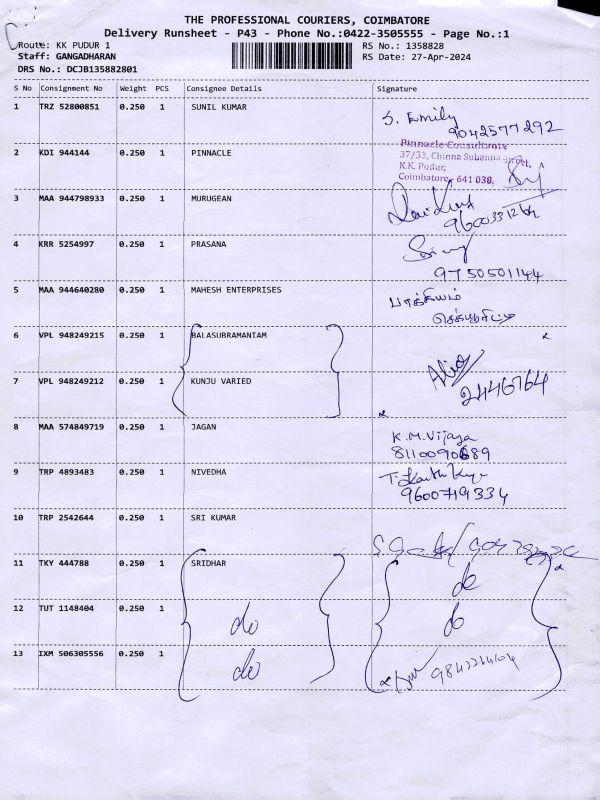 THE PROFESSIONAL COURIERS, COIMBATORE
Delivery Runsheet - P43 - Phone No.:0422-3505555 - Page No.:1
Route: KK PUDUR 1 RS No.: 1358828
Staff: GANGADHARAN RS Date: 27-Apr-2024
DRS No.: DCJB135882801
S No Consignment No Weight PCS Consignee Details Signature
1 TRZ 52800851 0.250 1 SUNIL KUMAR S. Emily
9042577292
2 KDI 944144 0.250 1 PINNACLE Pinnacle Consultants
37/33, Chinna Subanna Street,
K.K. Pudur,
Coimbatore - 641 038,
3 MAA 944798933 0.250 1 MURUGEAN
4 KRR 5254997 0.250 1 PRASANA
9750501144
5 MAA 944640280 0.250 1 MAHESH ENTERPRISES
6 VPL 948249215 0.250 1 BALASUBRAMANIAM
7 VPL 948249212 0.250 1 KUNJU VARIED
2446764
8 MAA 574849719 0.250 1 JAGAN K.M. Vijaya
9 TRP 4893483 0.250 1 NIVEDHA
9600719334
10 TRP 2542644 0.250 1 SRI KUMAR
11 TKY 444788 0.250 1 SRIDHAR do
12 TUT 1148404 0.250 1 do do
13 IXM 506305556 0.250 1 do